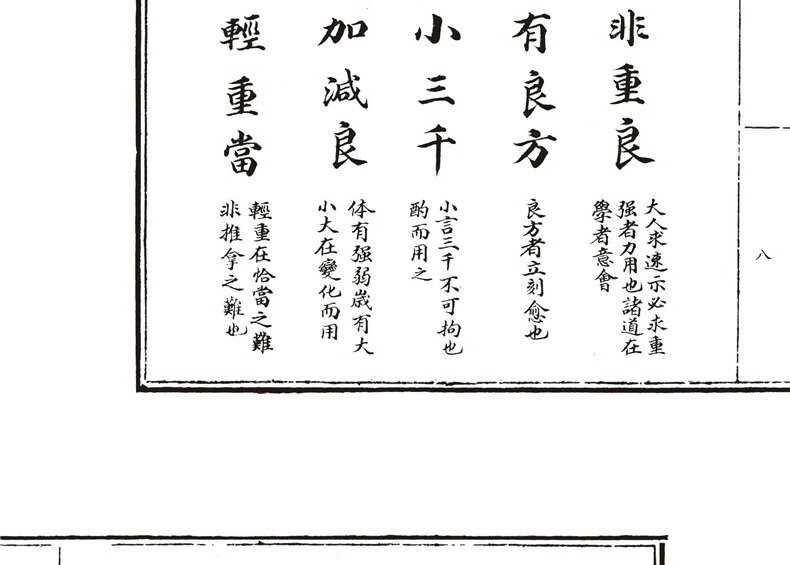 八
非重良
大人求速示必求重
强者力用也諸道在
學者意會
有良方
良方者立刻愈也
小三千
小言三千不可拘也
酌而用之
加減良
体有强弱嵗有大
小大在變化而用
輕重當
輕重在恰當之難
非推拿之難也